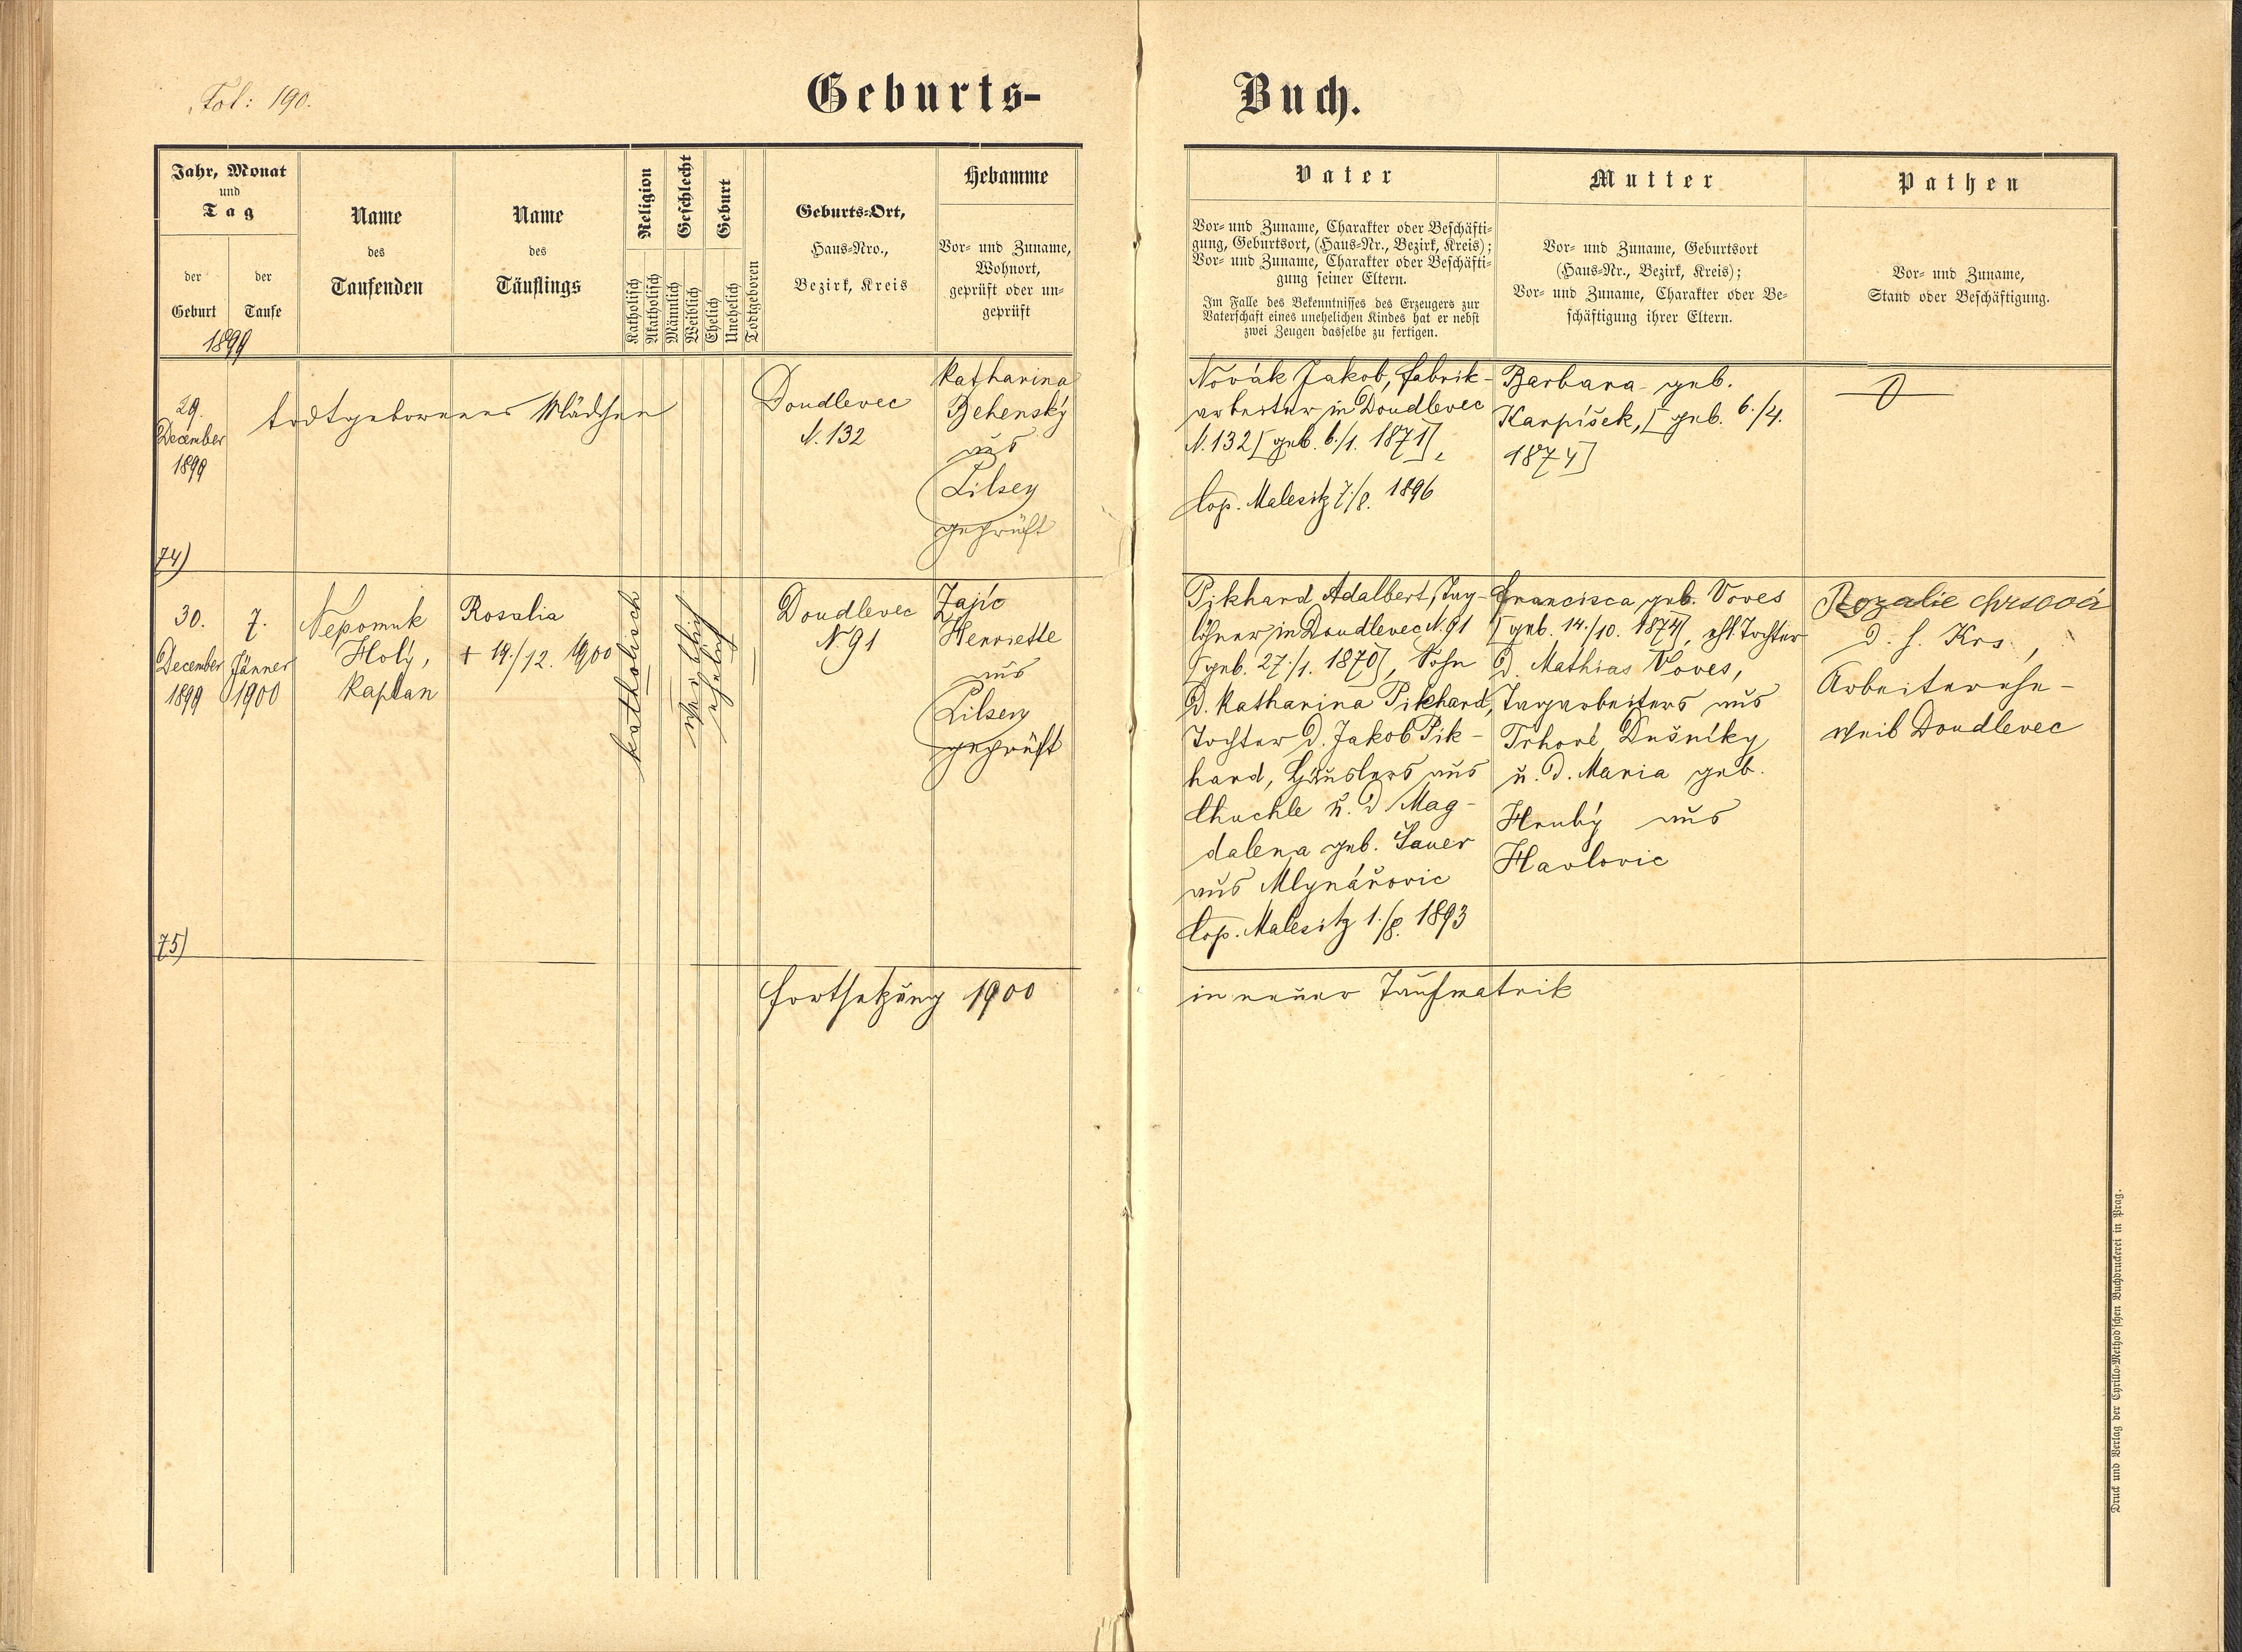 Fol: 190.
Geburts-
Buch.
Jahr, Monat
und
Tag
der
Geburt
der
Taufe
1899
Name
des
Taufenden
Name
des
Täuflings
Religion
Katholisch
Akatholisch
Geschlecht
Männlich
Weiblich
Geburt
Ehelich
Unehelich
Todtgeboren
Geburts-Ort,
Haus-Nro.,
Bezirk, Kreis
Hebamme
Vor- und Zuname,
Wohnort,
geprüft oder un-
geprüft
Vater
Vor- und Zuname, Charakter oder Beschäfti-
gung, Geburtsort, (Haus-Nr., Bezirk, Kreis);
Vor- und Zuname, Charakter oder Beschäfti-
gung seiner Eltern.
Im Falle des Bekenntnisses des Erzeugers zur
Vaterschaft eines unehelichen Kindes hat er nebst
zwei Zeugen dasselbe zu fertigen.
Mutter
Vor- und Zuname, Geburtsort
(Haus-Nr., Bezirk, Kreis);
Vor- und Zuname, Charakter oder Be-
schäftigung ihrer Eltern.
Pathen
Vor- und Zuname,
Stand oder Beschäftigung.
29.
December
1899
74)
todtgeborenes Mädchen
Doudlevec
N. 132
Katharina
Behenský
aus
Pilsen
geprüft
Novák Jakob, Fabrik-
arbeiter in Doudlevec
N. 132 [geb. 6./1. 1871],
Cop. Malesitz 7./8. 1896
Barbara geb.
Karpíšek, [geb. 6./4.
1874]
30.
December
1899
75)
7.
Jänner
1900
Nepomuk
Holý,
Kaplan
Rosalia
+ 19./12. 1900
katholisch
weiblich
ehelich
Doudlevec
N. 91
Zajíc
Henriette
aus
Pilsen
geprüft
Pikhard Adalbert, Tag-
löhner in Doudlevec N. 91
[geb. 27./1. 1870], Sohn
d. Katharina Pikhard,
Tochter d. Jakob Pik-
hard, Häuslers aus
Chuchle u. d. Mag-
dalena geb. Sauer
aus Mlynářovic
Cop. Malesitz 1./8. 1893
Francisca, geb. Voves
[geb. 14./10. 1874], ehl. Tochter
d. Mathias Voves,
Tagarbeiters aus
Trhové Dušníky
u. d. Maria geb.
Hrubý aus
Havlovic
Rozalie Chrsová
d. h. Krs,
Arbeitersehe-
weib Doudlevec
Fortsetzung 1900
in neuer Taufmatrik
Druck und Verlag der Cyrillo-Method'schen Buchdruckerei in Prag.